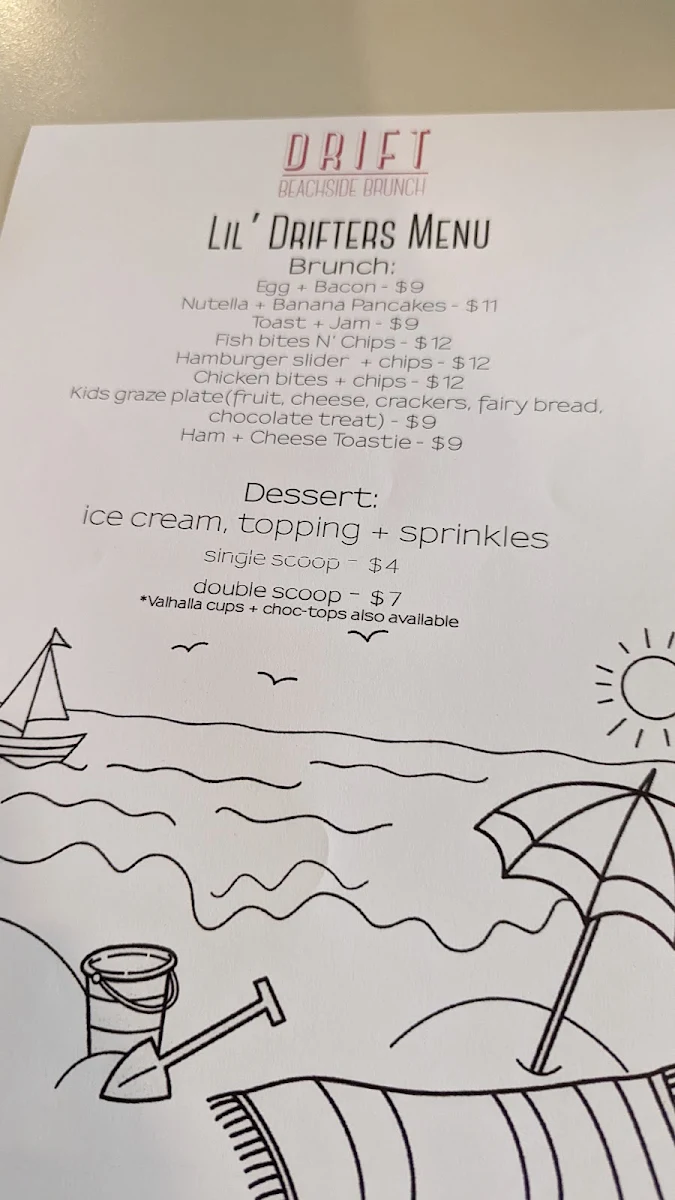 DRIFT
BEACHSIDE BRUNCH
LIL' DRIFTERS MENU
Brunch:
Egg + Bacon - $9
Nutella + Banana Pancakes - $11
Toast + Jam - $9
Fish bites N' Chips - $12
Hamburger slider + chips - $12
Chicken bites + chips - $12
Kids graze plate(fruit, cheese, crackers, fairy bread,
chocolate treat) - $9
Ham + Cheese Toastie - $9
Dessert:
ice cream, topping + sprinkles
single scoop - $4
double scoop - $7
*Valhalla cups + choc-tops also available